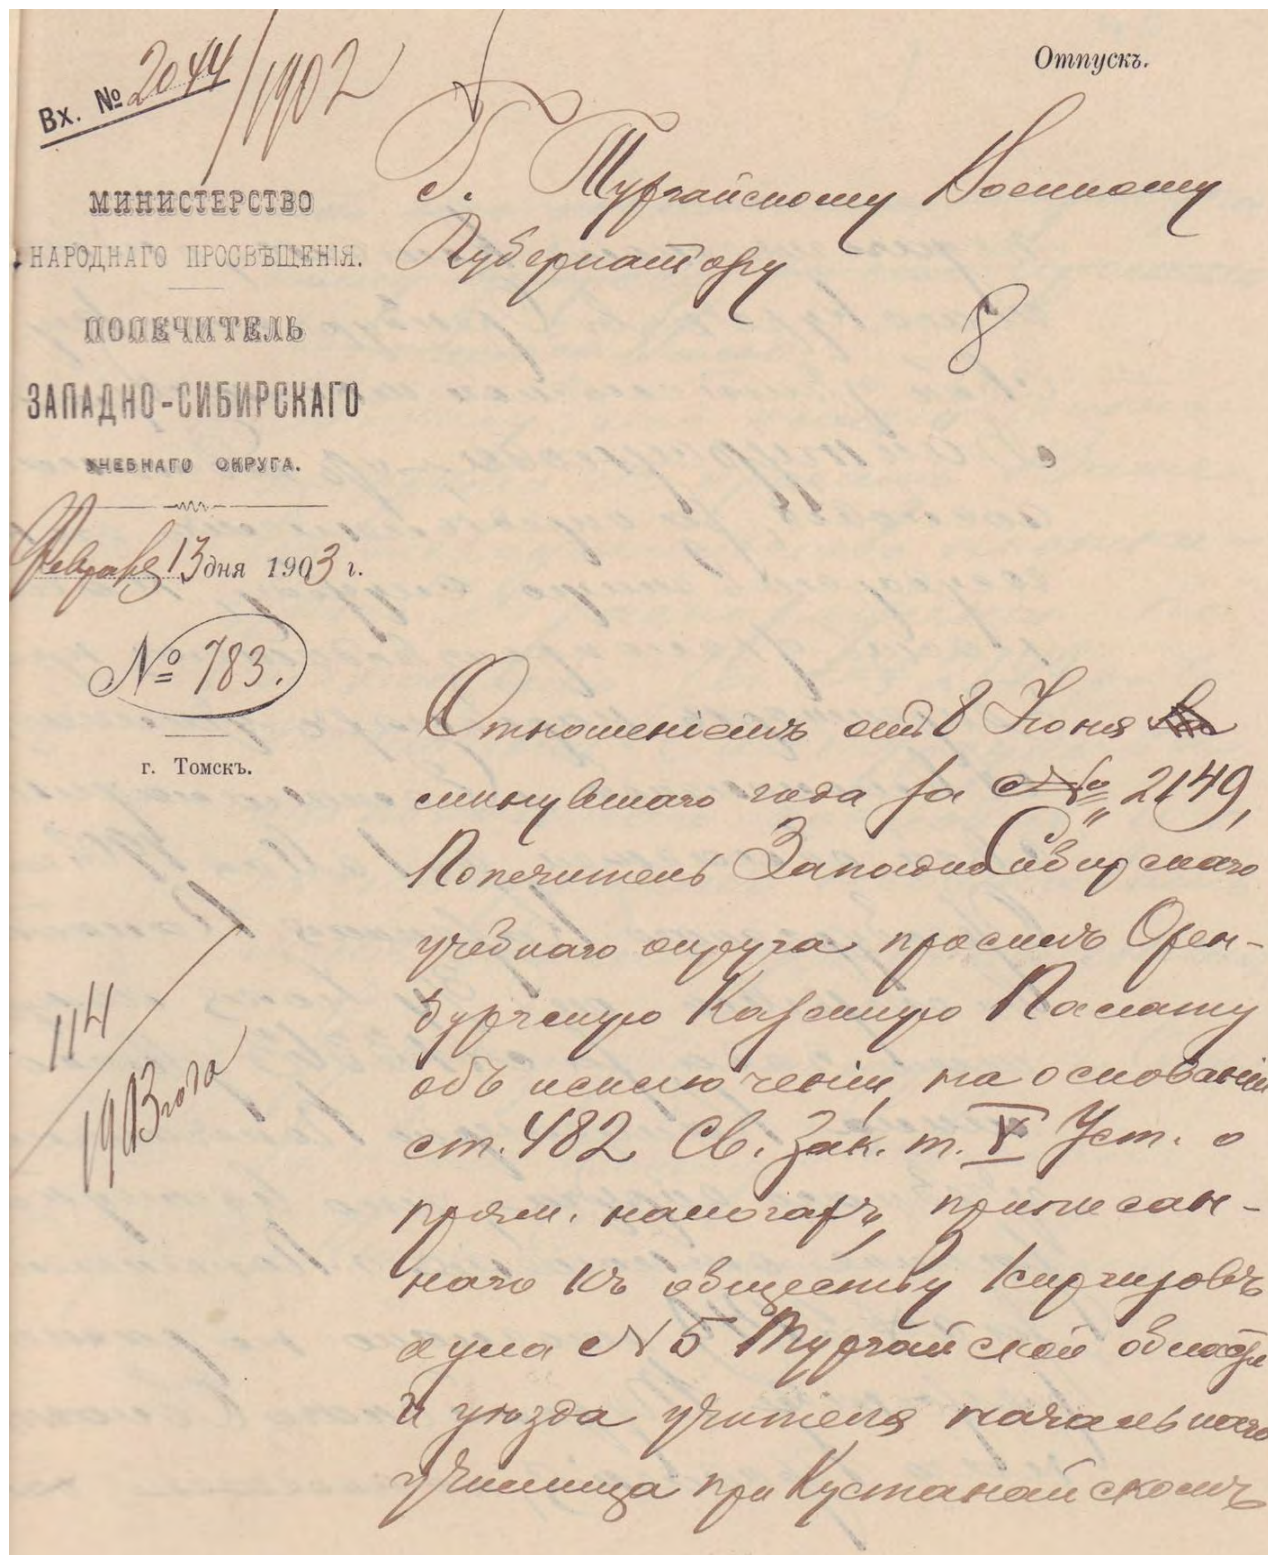 Вх. № 2044/1902
Отпускъ.
МИНИСТЕРСТВО
НАРОДНАГО ПРОСВѢЩЕНІЯ.
ПОПЕЧИТЕЛЬ
ЗАПАДНО-СИБИРСКАГО
УЧЕБНАГО ОКРУГА.
Февраля 13 дня 1903 г.
№ 783.
г. Томскъ.
114
1903 года
Г. Тургайскому Военному
Губернатору
8
Отношеніемъ отъ 8 Іюня
минувшаго года за № 2149,
Попечитель Западно-Сибирскаго
учебнаго округа просилъ Орен-
бургскую Казенную Палату
объ исключеніи, на основаніи
ст. 482 Св. Зак. т. V Уст. о
прям. налогахъ, приписан-
наго къ обществу Киргизовъ
аула № 5 Тургайской области
и уѣзда учителя начальнаго
училища при Кустанайскомъ